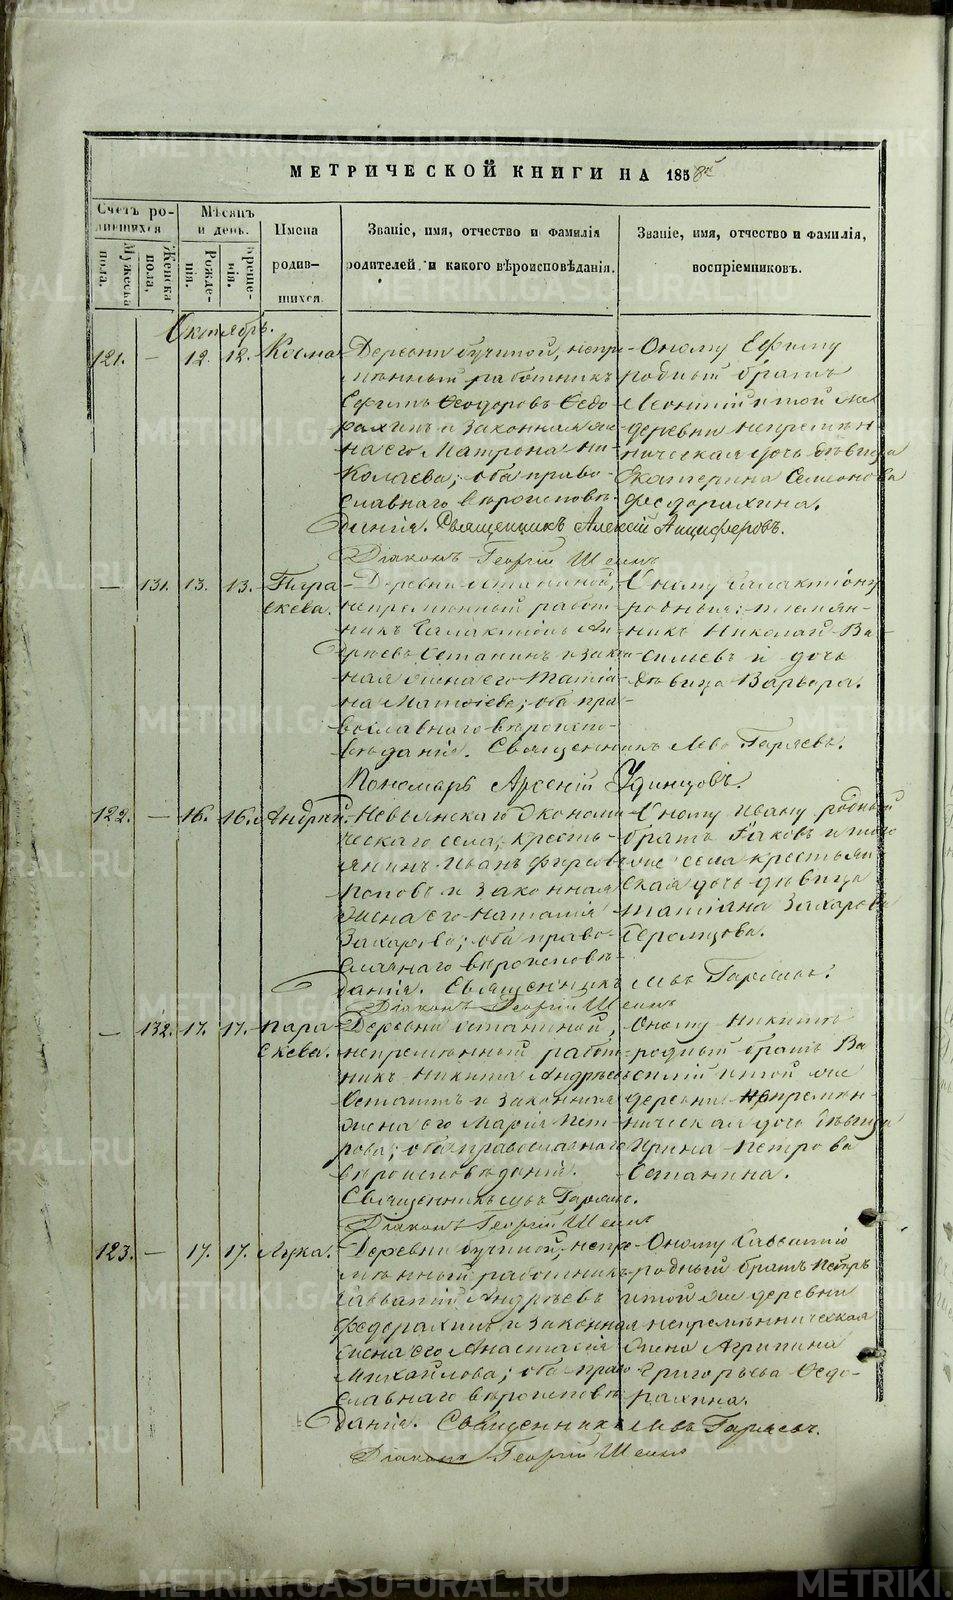 МЕТРИЧЕСКОЙ КНИГИ НА 1858
Счетъ ро-
дившихся
Мужеска пола.
Женска пола,
Мѣсяцъ
и день.
Рожде-
нія.
Креще-
нія.
Имена
родив-
шихся.
Званіе, имя, отчество и фамилія
родителей, и какого вѣроисповѣданія.
Званіе, имя, отчество и фамилія,
воспріемниковъ.
Октябрь.
121. — 12. 12. Косма
Деревни Бучиной, непре-
мѣнный работникъ
Ефимъ Ѳеодоровъ Ѳедо
рахинъ и законная же
на его Матрона Ни
колаева; оба право-
славнаго вѣроисповѣ-
данія. Священникъ Алексій Анциферовъ.
Діаконъ Георгій
Оному Ефиму
родный братъ
Леонтій и той же
деревни непремѣн
ническая дочь дѣвица
Екатерина Семенова
Федорахина.
— 131. 13. 13. Пара
скева.
Деревни Останиной,
непремѣнный работ-
никъ Галактіонъ Ан-
дреевъ Останинъ и закон-
ная жена его Татіа-
на Матѳіева; оба пра-
вославнаго вѣроиспо-
вѣданія. Священникъ Левъ Гаряевъ.
Пономарь Арсеній Удинцовъ.
Оному Галактіону
родные: племян-
никъ Николай Ва-
сильевъ и дочь
дѣвица Варвара.
122. — 16. 16. Андрей.
Невьянскаго Экономи-
ческаго села, кресть-
янинъ Иванъ Фирсовъ
Поповъ и законная
жена его Наталія
Захарова; оба право-
славнаго вѣроисповѣ-
данія. Священникъ Левъ Гаряевъ.
Діаконъ Георгій
Оному Ивану родный
братъ Іаковъ и того
же села крестьян
ская дочь дѣвица
Татіана Захарова
— 132. 17. 17. Пара
скева.
Деревни Останиной,
непремѣнный работ-
никъ Никита Андреевъ
Останинъ и законная
жена его Марія Пет-
рова; оба православнаго
вѣроисповѣданія.
Священникъ Левъ Гаряевъ.
Діаконъ Георгій
Оному Никитѣ
родный братъ Ва
силій и той же
деревни непремѣн-
ническая дочь дѣвица
Ирина Петрова
Останина.
123. — 17. 17. Лука.
Деревни Бучиной, непре-
мѣнный работникъ
Савватій Андреевъ
Федорахинъ и законная
жена его Анастасія
Михайлова; оба право-
славнаго вѣроисповѣ
данія. Священникъ Левъ Гаряевъ.
Діаконъ Георгій
Оному Савватію
родный братъ Петръ
и той же деревни
непремѣнническая
жена Агрипина
Григорьева Ѳедо-
рахина.
METRIKI.GASO-URAL.RU